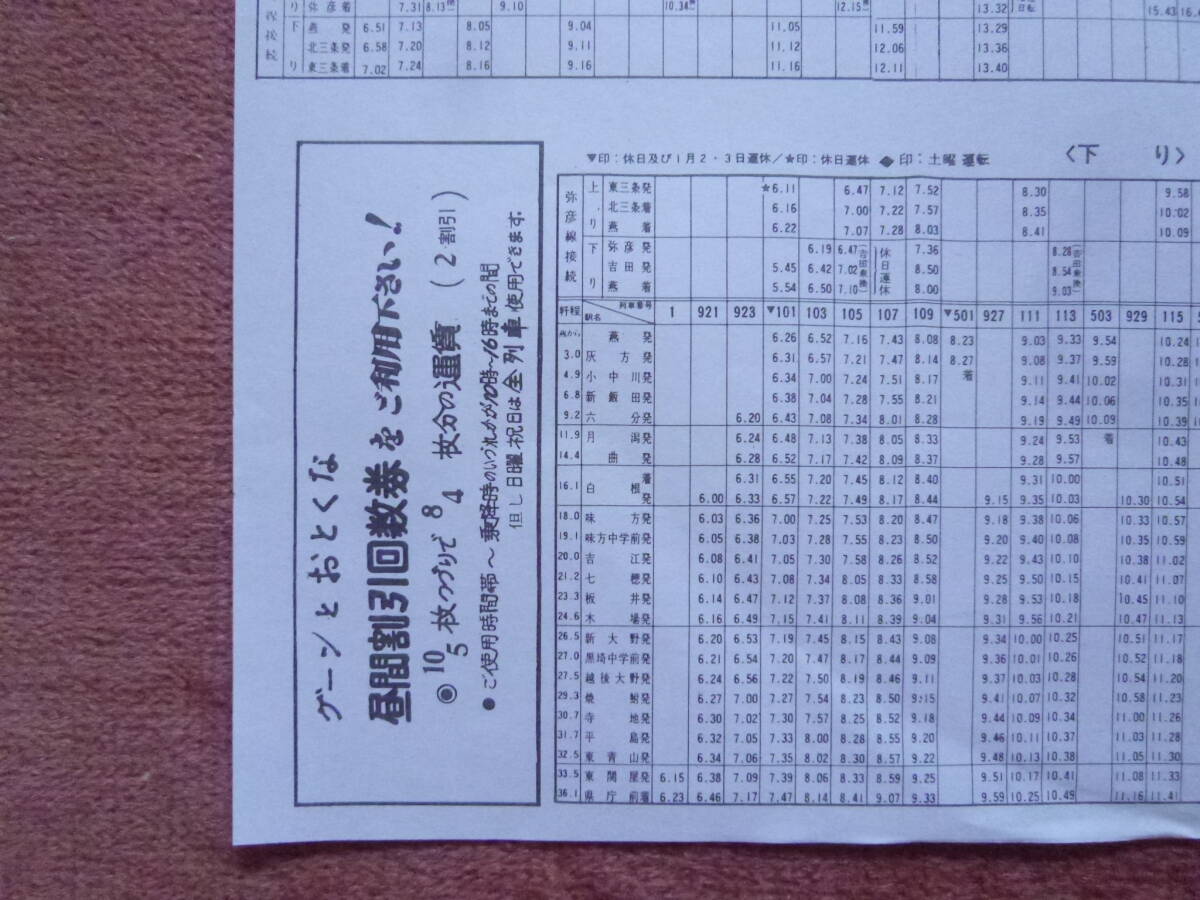 り 弥彦着 7.31 8.13 9.10 10.34 12.15 13.32 15.43
下 燕 発 6.51 7.13 8.05 9.04 11.05 11.59 13.29
北三条発 6.58 7.20 8.12 9.11 11.12 12.06 13.36
り 東三条着 7.02 7.24 8.16 9.16 11.16 12.11 13.40
ゲーンとおとくな
昼間割引回数券をご利用下さい!
◉ 10 5 枚つづりで 8 4 枚分の運賃 (2割引)
● ご使用時間帯〜乗降時のいづれかが10時〜16時までの間
但し日曜祝日は全列車使用できます.
▼印:休日及び1月2・3日運休/★印:休日運休 ◆印:土曜運転 〈下 り〉
弥彦線接続
上り 東三条発 ★6.11 6.47 7.12 7.52 8.30 9.58
北三条着 6.16 7.00 7.22 7.57 8.35 10.02
燕 着 6.22 7.07 7.28 8.03 8.41 10.09
下り 弥彦発 6.19 6.47 (吉田乗換) (休日運休) 7.36 8.28 (吉田乗換)
吉田発 5.45 6.42 7.02 8.50 8.54
燕 着 5.54 6.50 7.10 8.00 9.03
粁程 駅名 列車番号 1 921 923 ▼101 103 105 107 109 ▼501 927 111 113 503 929 115
燕から 燕 発 6.26 6.52 7.16 7.43 8.08 8.23 9.03 9.33 9.54 10.24
3.0 灰方発 6.31 6.57 7.21 7.47 8.14 8.27 9.08 9.37 9.59 10.28
4.9 小中川発 6.34 7.00 7.24 7.51 8.17 着 9.11 9.41 10.02 10.31
6.8 新飯田発 6.38 7.04 7.28 7.55 8.21 9.14 9.44 10.06 10.35
9.2 六分発 6.20 6.43 7.08 7.34 8.01 8.28 9.19 9.49 10.09 10.39
11.9 月潟発 6.24 6.48 7.13 7.38 8.05 8.33 9.24 9.53 着 10.43
14.4 曲発 6.28 6.52 7.17 7.42 8.09 8.37 9.28 9.57 10.48
16.1 白根 着 6.31 6.55 7.20 7.45 8.12 8.40 9.31 10.00 10.51
発 6.00 6.33 6.57 7.22 7.49 8.17 8.44 9.15 9.35 10.03 10.30 10.54
18.0 味方発 6.03 6.36 7.00 7.25 7.53 8.20 8.47 9.18 9.38 10.06 10.33 10.57
19.1 味方中学前発 6.05 6.38 7.03 7.28 7.55 8.23 8.50 9.20 9.40 10.08 10.35 10.59
20.0 吉江発 6.08 6.41 7.05 7.30 7.58 8.26 8.52 9.22 9.43 10.10 10.38 11.02
21.2 七穂発 6.10 6.43 7.08 7.34 8.05 8.33 8.58 9.25 9.50 10.15 10.41 11.07
23.3 板井発 6.14 6.47 7.12 7.37 8.08 8.36 9.01 9.28 9.53 10.18 10.45 11.10
24.6 木場発 6.16 6.49 7.15 7.41 8.11 8.39 9.04 9.31 9.56 10.21 10.47 11.13
26.5 新大野発 6.20 6.53 7.19 7.45 8.15 8.43 9.08 9.34 10.00 10.25 10.51 11.17
27.0 黒埼中学前発 6.21 6.54 7.20 7.47 8.17 8.44 9.09 9.36 10.01 10.26 10.52 11.18
27.5 越後大野発 6.24 6.56 7.22 7.50 8.19 8.46 9.11 9.37 10.03 10.28 10.54 11.20
29.3 焼鮒発 6.27 7.00 7.27 7.54 8.23 8.50 9.15 9.41 10.07 10.32 10.58 11.23
30.7 寺地発 6.30 7.02 7.30 7.57 8.25 8.52 9.18 9.44 10.09 10.34 11.00 11.26
31.7 平島発 6.32 7.05 7.33 8.00 8.28 8.55 9.20 9.46 10.11 10.37 11.03 11.28
32.5 東青山発 6.34 7.06 7.35 8.02 8.30 8.57 9.22 9.48 10.13 10.38 11.05 11.30
33.5 東関屋発 6.15 6.38 7.09 7.39 8.06 8.33 8.59 9.25 9.51 10.17 10.41 11.08 11.33
36.1 県庁前着 6.23 6.46 7.17 7.47 8.14 8.41 9.07 9.33 9.59 10.25 10.49 11.16 11.41